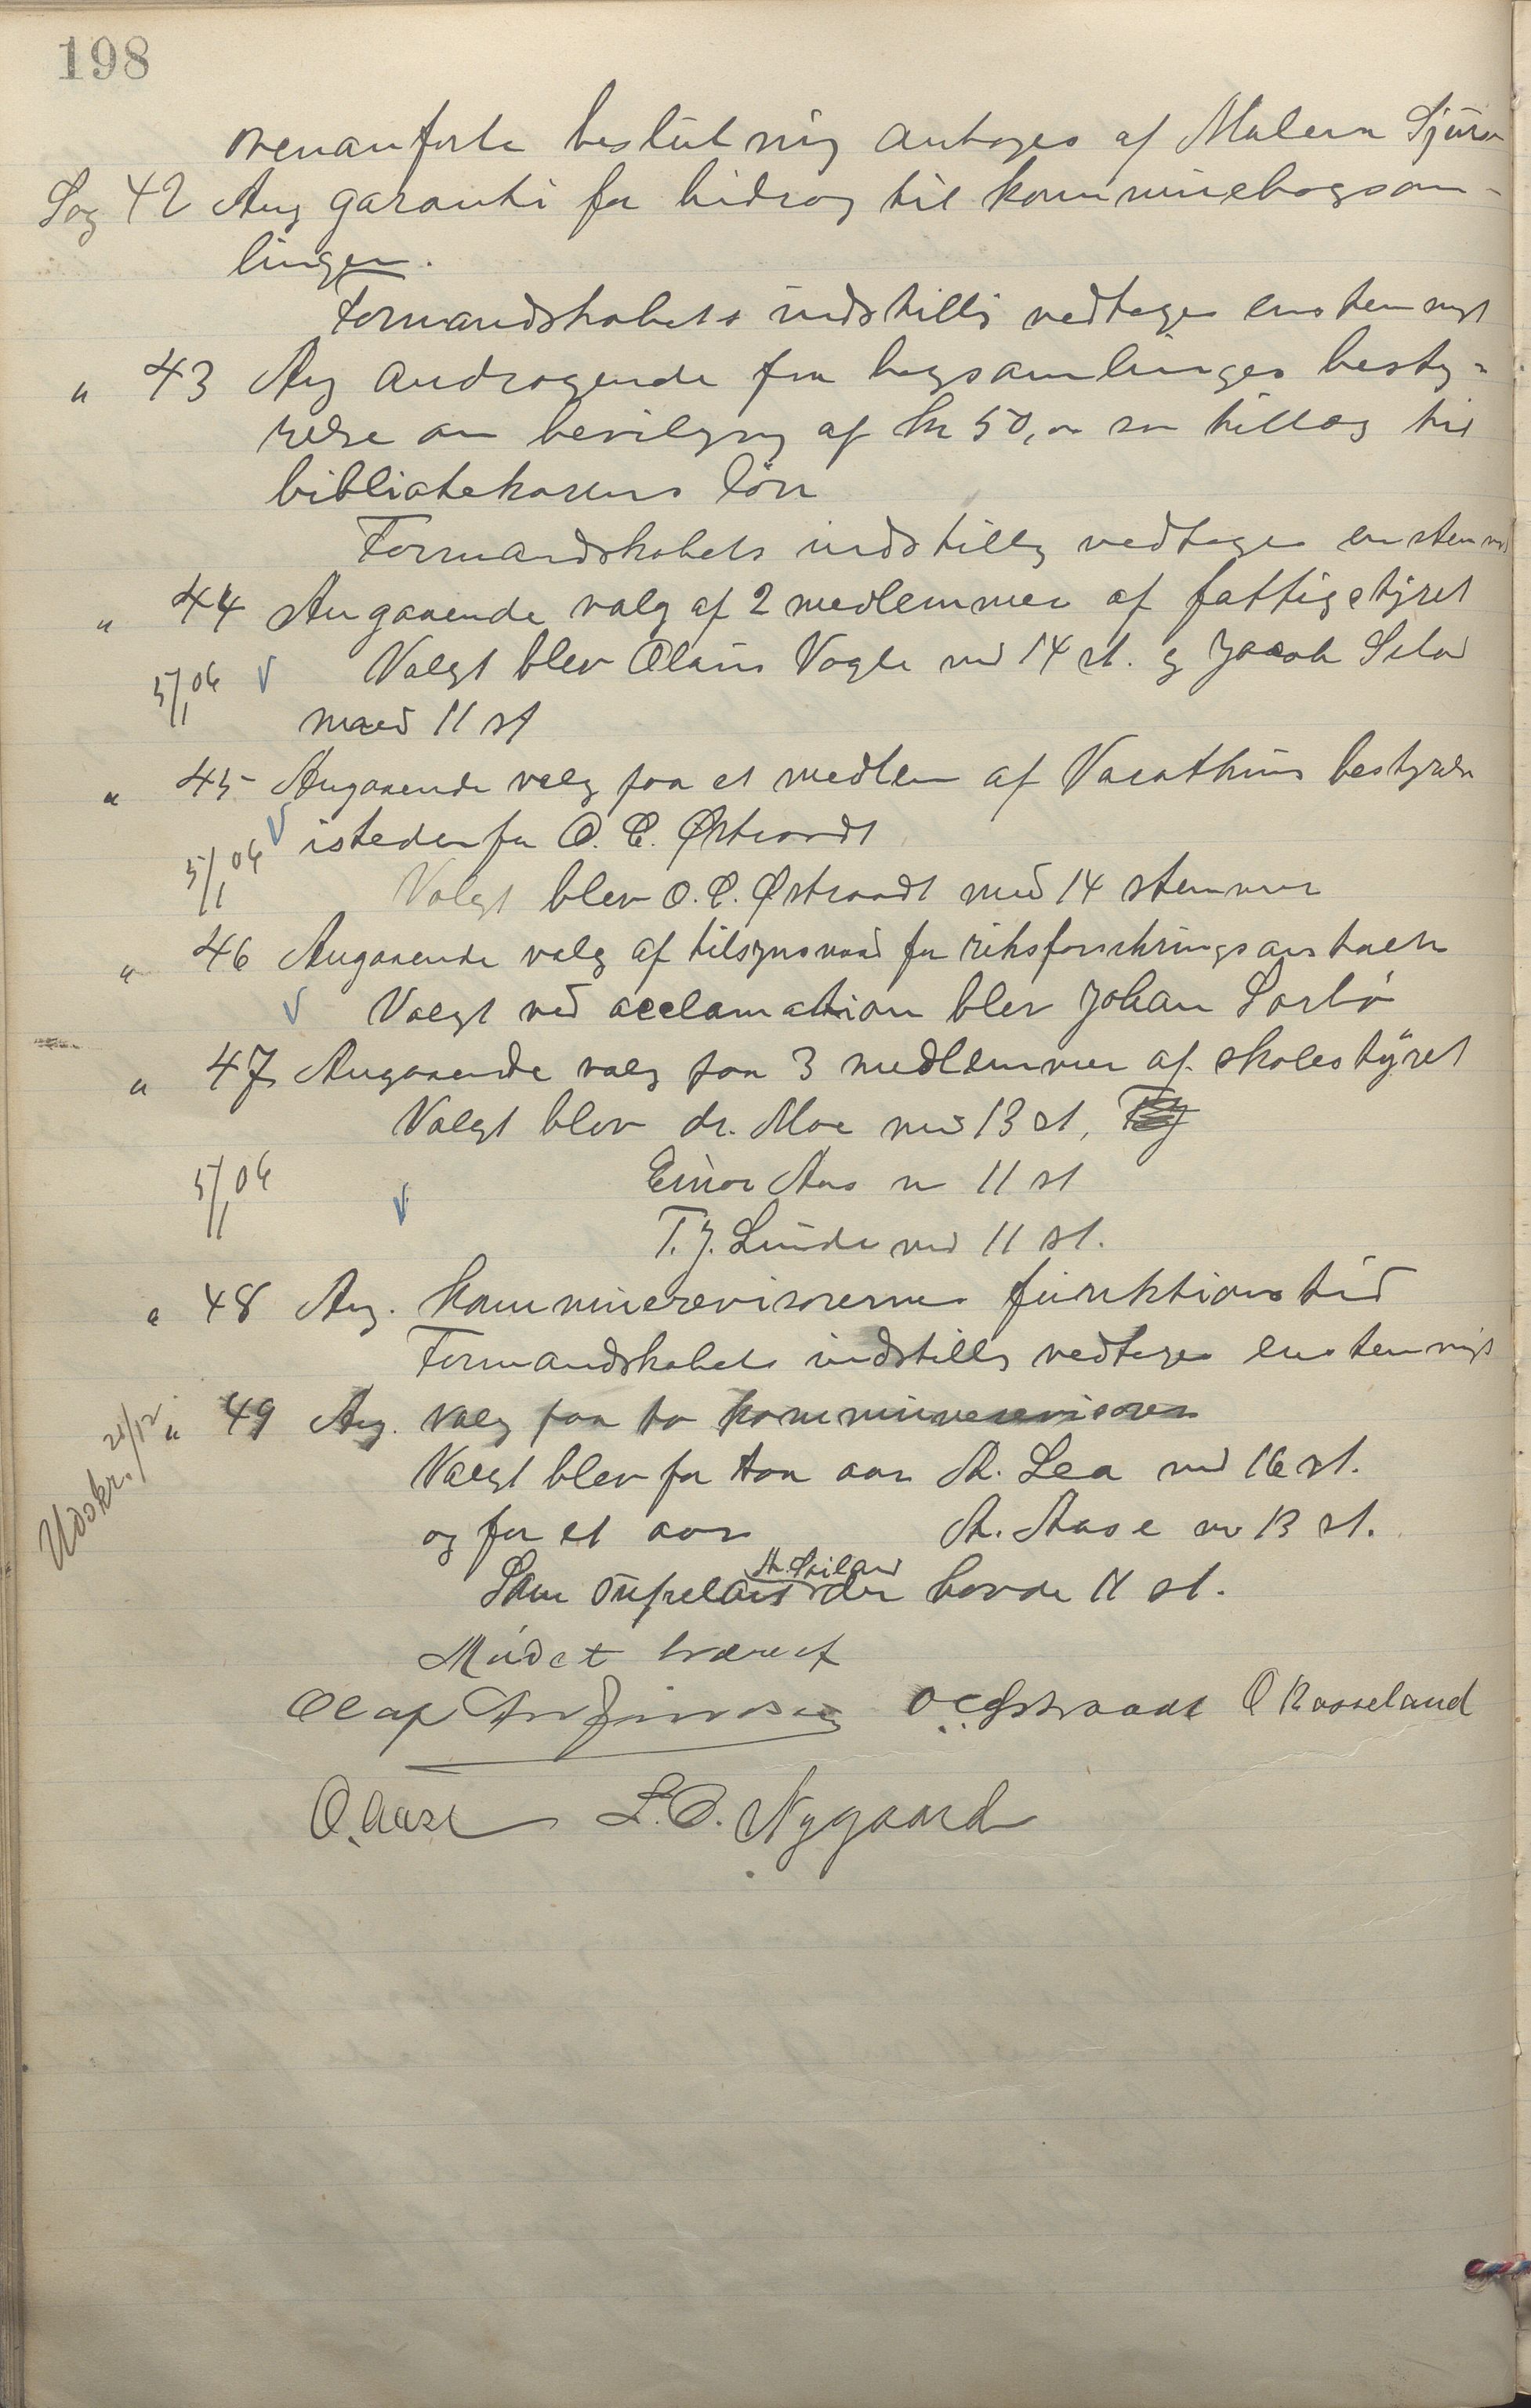 198
ovenanførte beslutning antoges af Malern Sjurs
Sag 42 Ang garanti for bidrag til kommunebogsam-
lingen.
Formandskabets indstilling vedtoges enstemmigt
" 43 Ang andragende fra bogsamlinges besty-
relse om bevilgning af kr 50,00 som tillæg til
bibliotekarens løn
Formandskabets indstilling vedtoges enstemmigt
" 44 Angaaende valg af 2 medlemmer af fattigstyret
5/1 06 Valgt blev Olaus Vogle med 14 st. og Jacob
med 11 st
" 45 Angaaende valg paa et medlem af bestyrelse
istedenfor O. C. Østraadt
5/1 06 Valgt blev O. C. Østraadt med 14 stemmer
" 46 Angaaende valg af tilsynsmand for riksforsikringsanstalten
Valgt ved acclamation blev Johan Sørbø
" 47 Angaaende valg paa 3 medlemmer af skolestyret
Valgt blev dr. Moe med 13 st,
5/1 06 Einar Aas m 11 st
T. J. Lunde med 11 st.
" 48 Ang. kommunerevisorernes funktionstid
Formandskabets indstilling vedtoges enstemmigt
Udskr. 21/12 " 49 Ang. valg paa to kommunerevisorer
Valgt blev for to aar A. Lea med 16 st.
og for et aar A. Aase m 13 st.
Som suppleant der havde 11 st.
Mødet hævet
Olaf O C Østraadt O Rosseland
O. Aase L. O. Nygaard